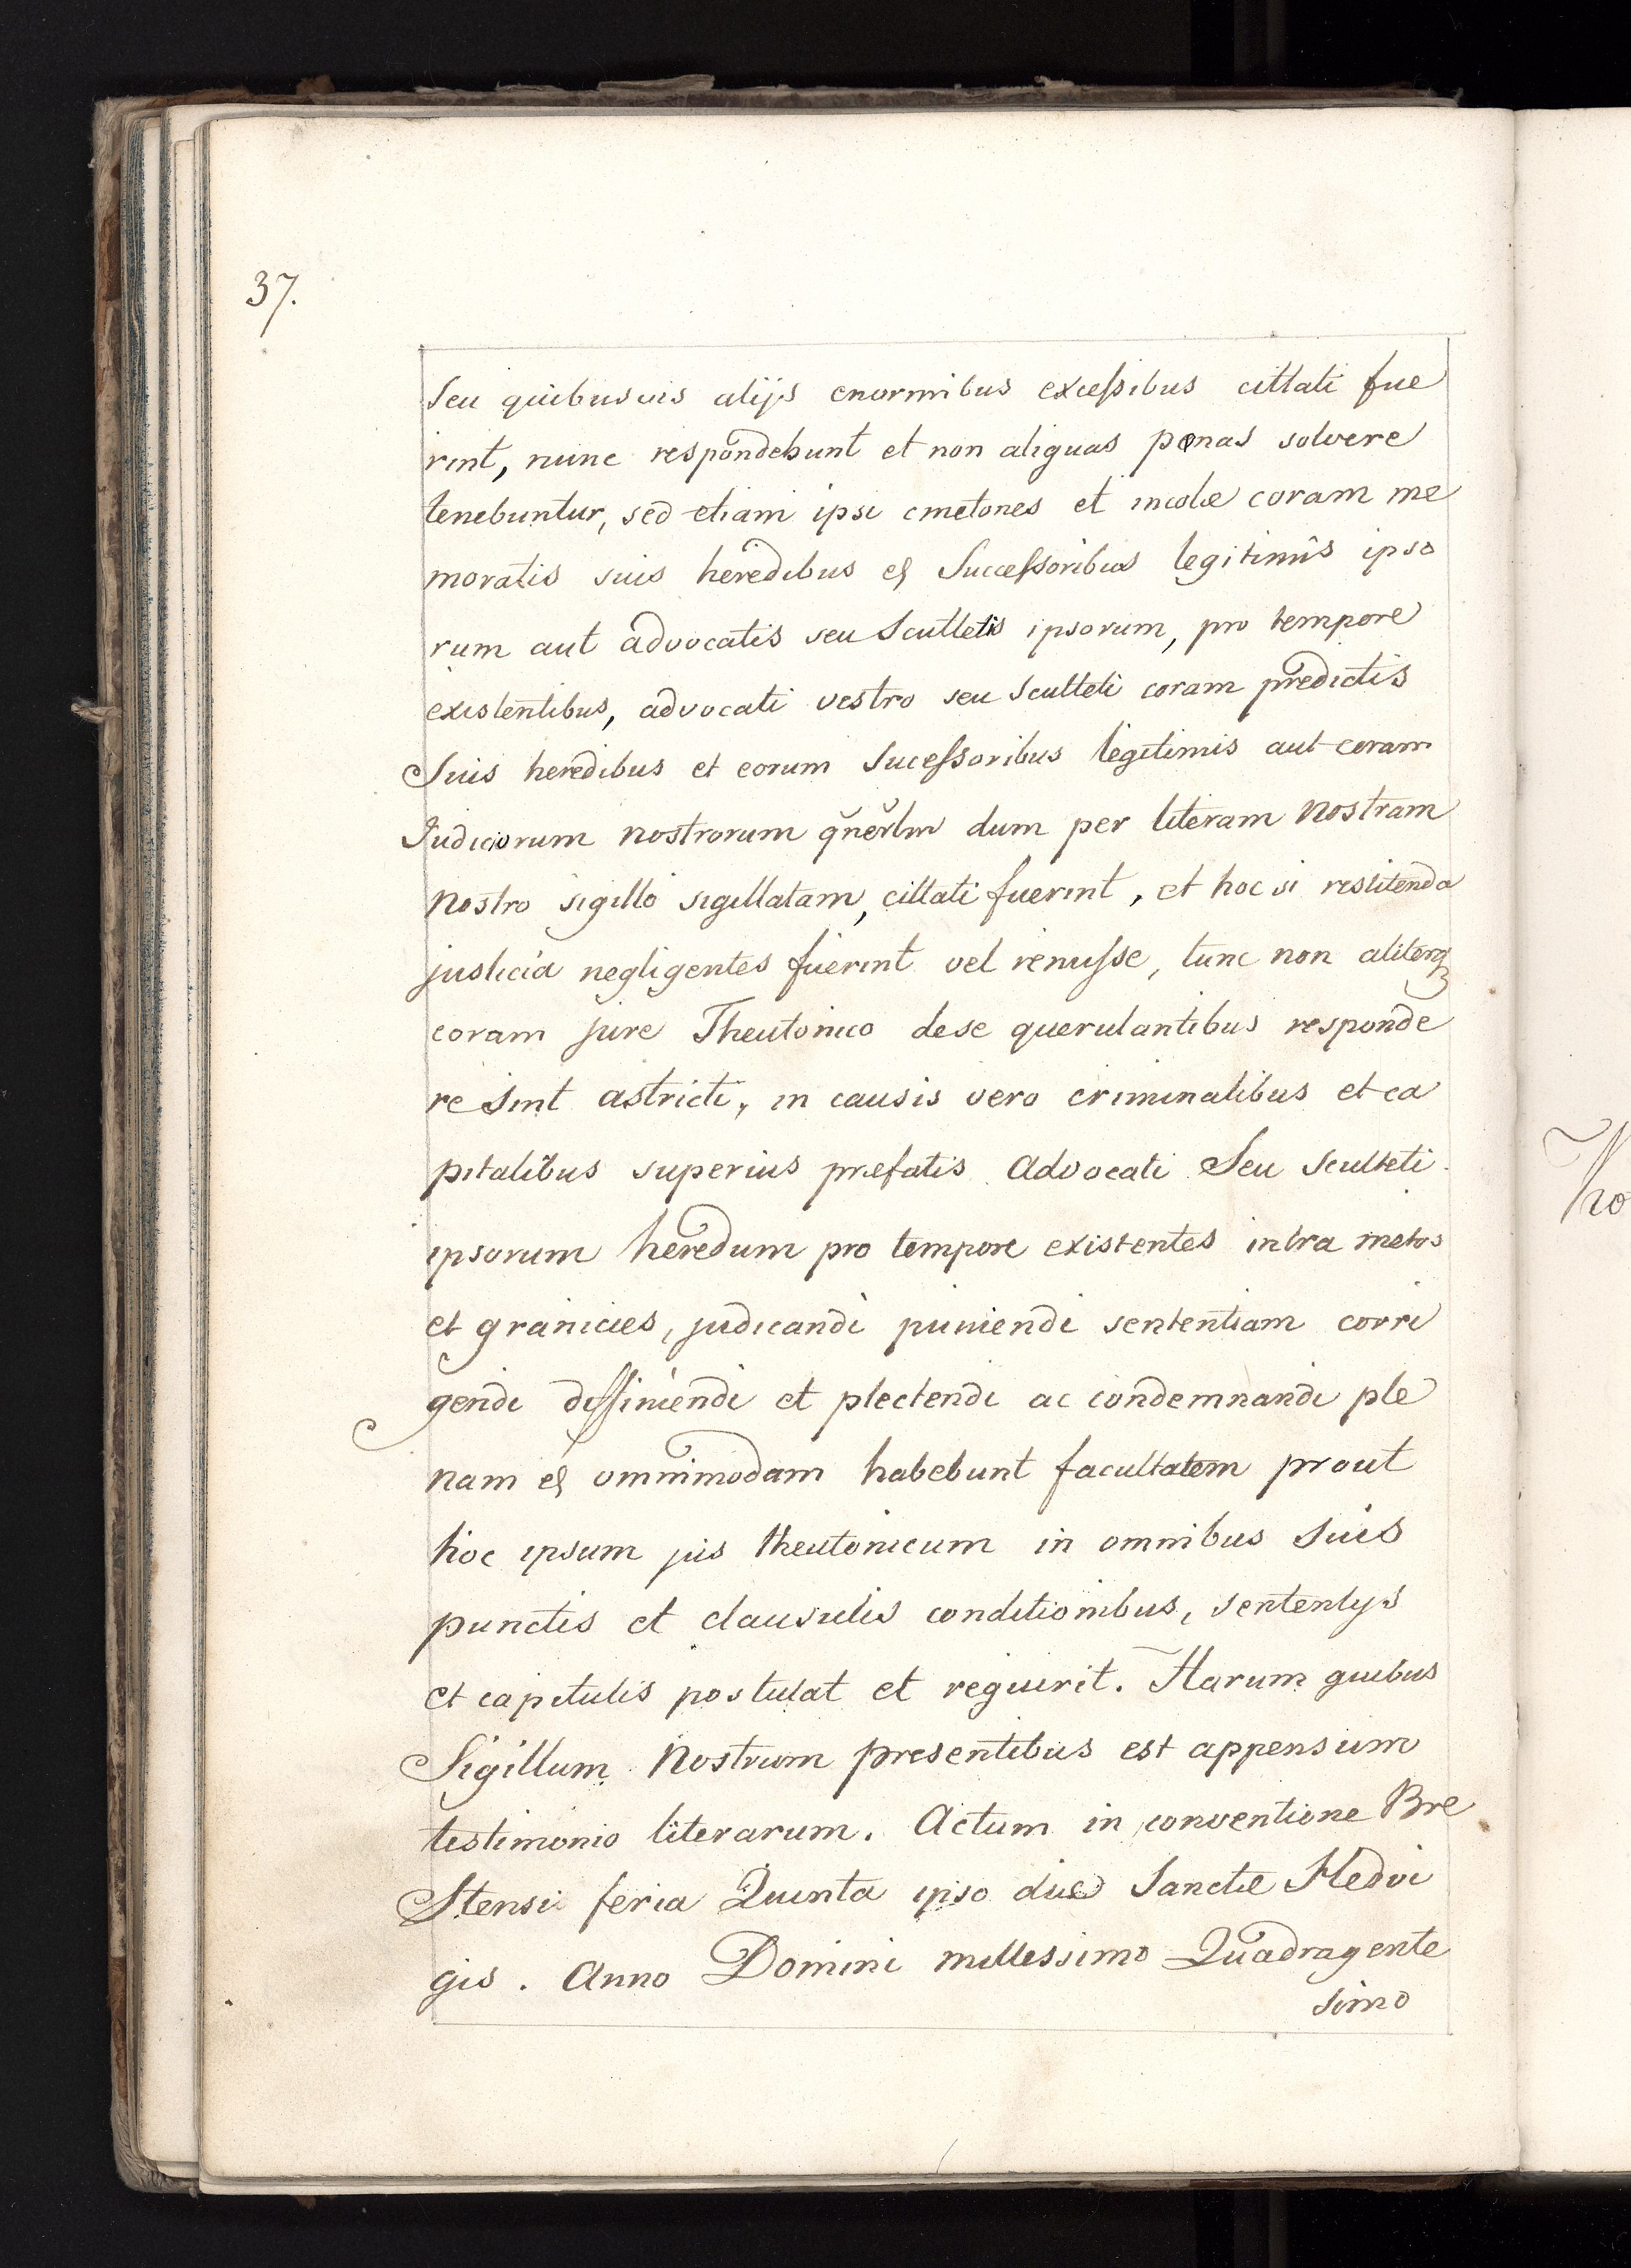 37.
seu quibusuis alijs enormibus excessibus cittati fue
rint, nunc respondebunt et non aliquas penas solvere
tenebuntur, sed etiam ipsi cmetones et incolæ coram me
moratis suis heredibus et Successoribus legitimis ipso
rum aut advocatis seu Scultetis ipsorum, pro tempore
existentibus, advocati vestro seu Sculteti coram predictis
Suis heredibus et eorum Sucessoribus legitimis aut coram
Judiciorum nostrorum dum per literam nostram
nostro sigillo sigillatam, cittati fuerint, et hoc si restitenda
justicia negligentes fuerint vel remisse, tunc non aliterq
coram jure Theutonico dese querulantibus responde
re sint astricti, in causis vero criminalibus et ca
pitalibus superius præfatis Advocati Seu Sculteti
ipsorum heredum pro tempore existentes intra metas
et granicies, judicandi puniendi sententiam corri
gendi diffiniendi et plectendi ac condemnandi ple
nam et omnimodam habebunt facultatem prout
hoc ipsum jus theutonicum in omnibus Suis
punctis et clausulis conditionibus, sententijs
et capitulis postulat et requirit. Harum quibus
Sigillum Nostrum presentibus est appensum
testimonio literarum. Actum in conventione Bre
Stensi feria Quinta ipso die Sanctæ Hedvi
gis. Anno Domini millessimo Quadragente
simo